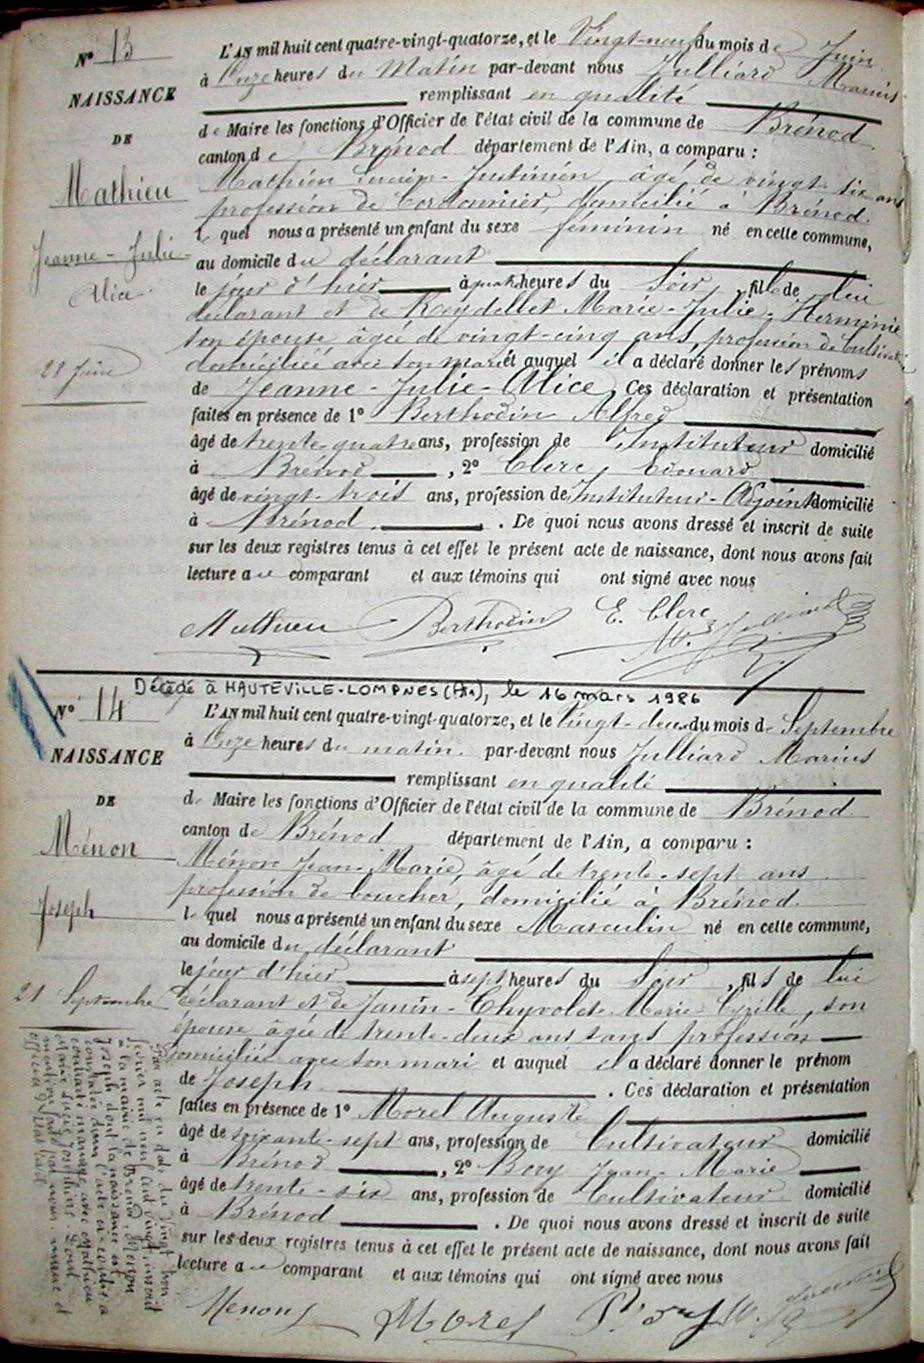 N° 13
NAISSANCE
DE
Mathieu
Jeanne-Julie-
Alice
28 Juin
L'AN mil huit cent quatre-vingt-quatorze, et le Vingt-neuf du mois de Juin
à Onze heures du Matin par-devant nous Julliard Marius
remplissant en qualité
de Maire les fonctions d'Officier de l'état civil de la commune de Brénod
canton de Brénod département de l'Ain, a comparu :
Mathieu Lucien-Justinien, âgé de vingt-six ans
profession de Cordonnier, domicilié à Brénod.
lequel nous a présenté un enfant du sexe féminin né en cette commune,
au domicile du déclarant
le jour d'hier à quatre heures du Soir, fille de lui
déclarant et de Reydellet Marie-Julie-Herminie
son épouse âgée de vingt-cinq ans, profession de
domiciliée avec son mari et auquel il a déclaré donner les prénoms
de Jeanne-Julie-Alice. Ces déclaration et présentation
faites en présence de 1° Berthodin Alfred
âgé de trente-quatre ans, profession de Instituteur domicilié
à Brénod, 2° Clerc Edouard
âgé de vingt-trois ans, profession de Instituteur-Adjoint domicilié
à Brénod. De quoi nous avons dressé et inscrit de suite
sur les deux registres tenus à cet effet le présent acte de naissance, dont nous avons fait
lecture au comparant et aux témoins qui ont signé avec nous
Mathieu Berthodin E. Clerc M. Julliard
Décédé à HAUTEVILLE-LOMPNES (Ain), le 16 mars 1986
N° 14
NAISSANCE
DE
Ménon
Joseph
21 Septembre
L'AN mil huit cent quatre-vingt-quatorze, et le Vingt-deux du mois de Septembre
à Onze heures du matin par-devant nous Julliard Marius
remplissant en qualité
de Maire les fonctions d'Officier de l'état civil de la commune de Brénod
canton de Brénod département de l'Ain, a comparu :
Ménon Jean-Marie, âgé de trente-sept ans
profession de boucher, domicilié à Brénod.
lequel nous a présenté un enfant du sexe Masculin né en cette commune,
au domicile du déclarant
le jour d'hier à sept heures du Soir, fils de lui
déclarant et de Janin-Thyvolet Marie, son
épouse âgée de trente-deux ans sans profession
domiciliée avec son mari et auquel il a déclaré donner le prénom
de Joseph. Ces déclaration et présentation
faites en présence de 1° Morel Auguste
âgé de soixante-sept ans, profession de Cultivateur domicilié
à Brénod, 2° Jean-Marie
âgé de trente-six ans, profession de Cultivateur domicilié
à Brénod. De quoi nous avons dressé et inscrit de suite
sur les deux registres tenus à cet effet le présent acte de naissance, dont nous avons fait
lecture au comparant et aux témoins qui ont signé avec nous
Menon Morel